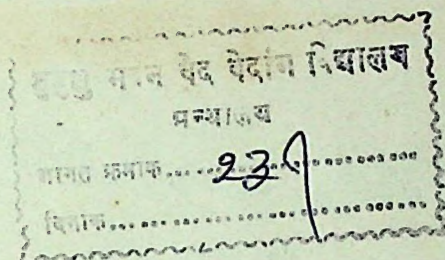 भवन वेद वेदांग विद्यालय
ग्रन्थालय
आगत क्रमांक.... २३१ ....
दिनांक....